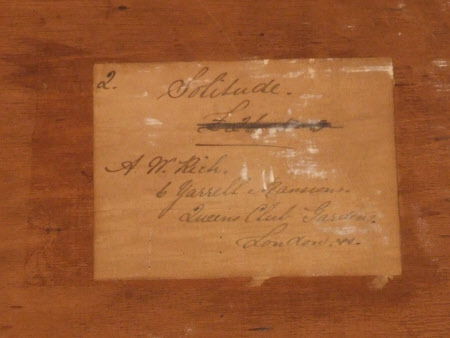 2.
Solitude.
A. W. Rich.
6 Yarrell Mansions.
Queens Club Gardens.
London. W.